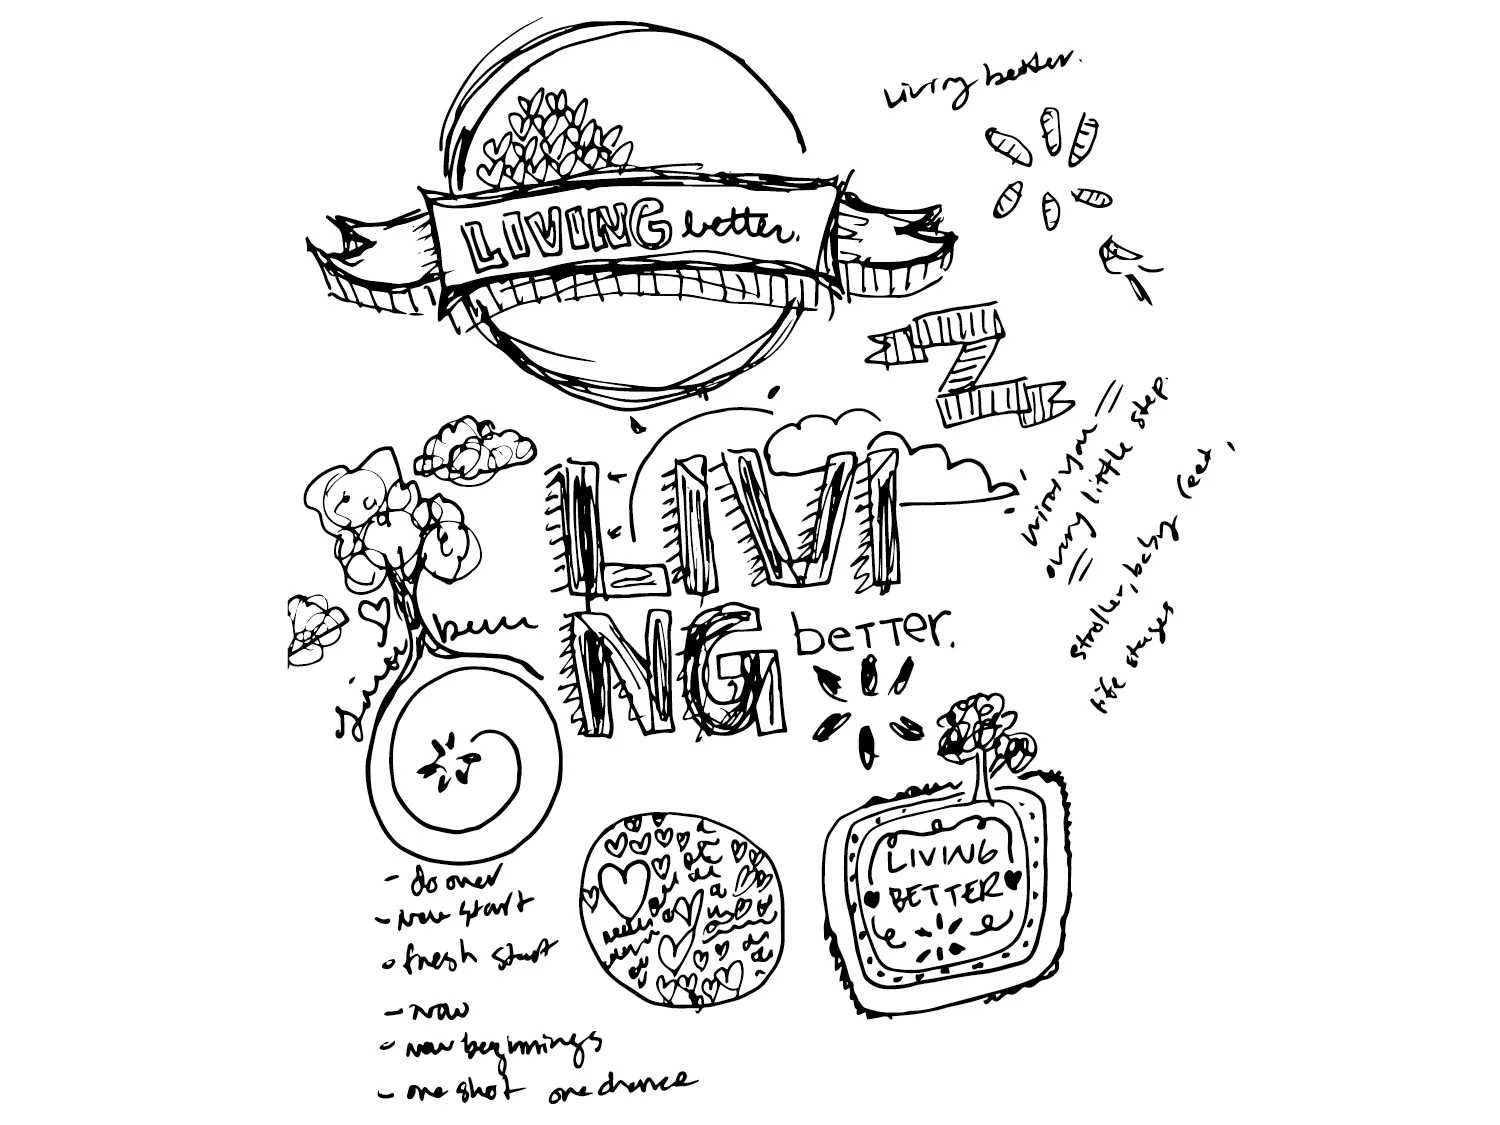 Living better.
LIVING better.
every little step.
stroller, baby feet,
life stages
LIVI
NG better.
Living
LIVING
BETTER
- do over
- new start
- fresh start
- now
- new beginnings
- one shot one chance